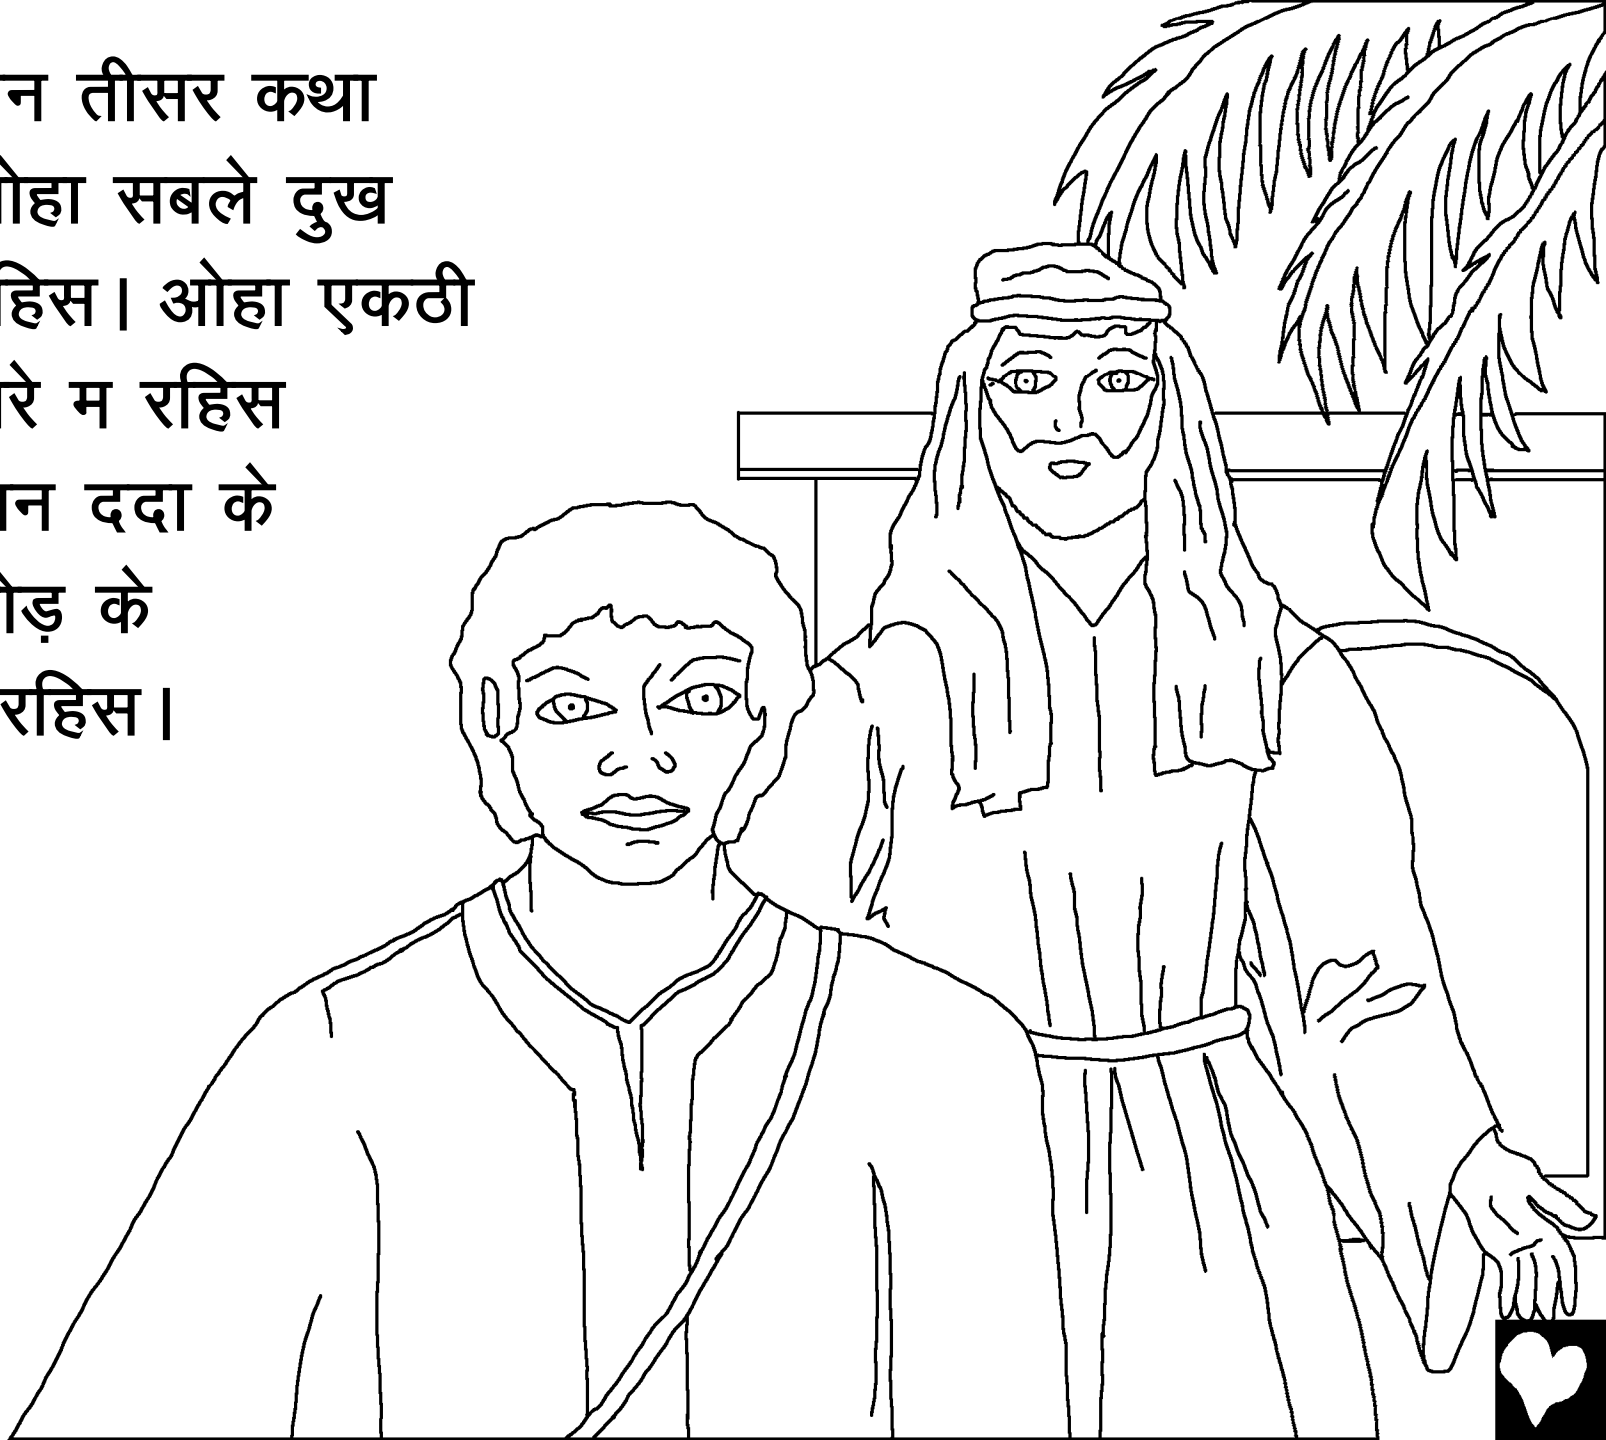 न तीसर कथा
सबले दुख
ओहा एकठी
म रहिस
ददा के
के
रहिस।